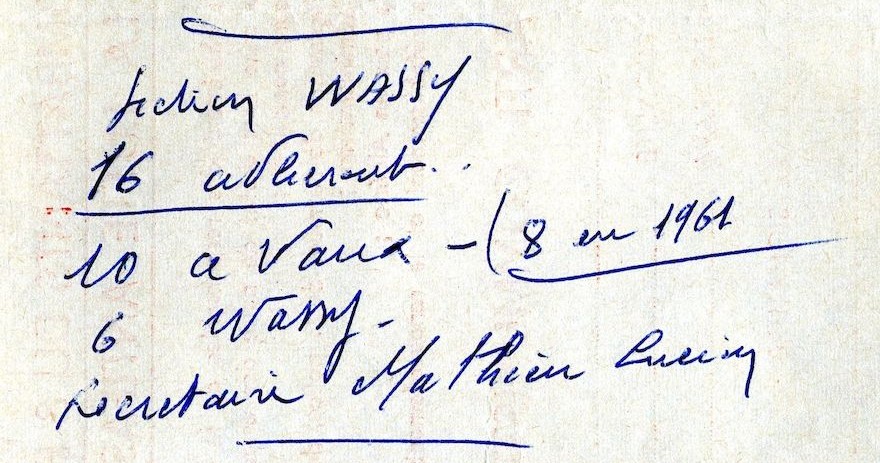 Section WASSY
16 adhérents..
10 a Vaux - ( 8 en 1961
6 Wassy -
Secretaire Mathieu Lucien